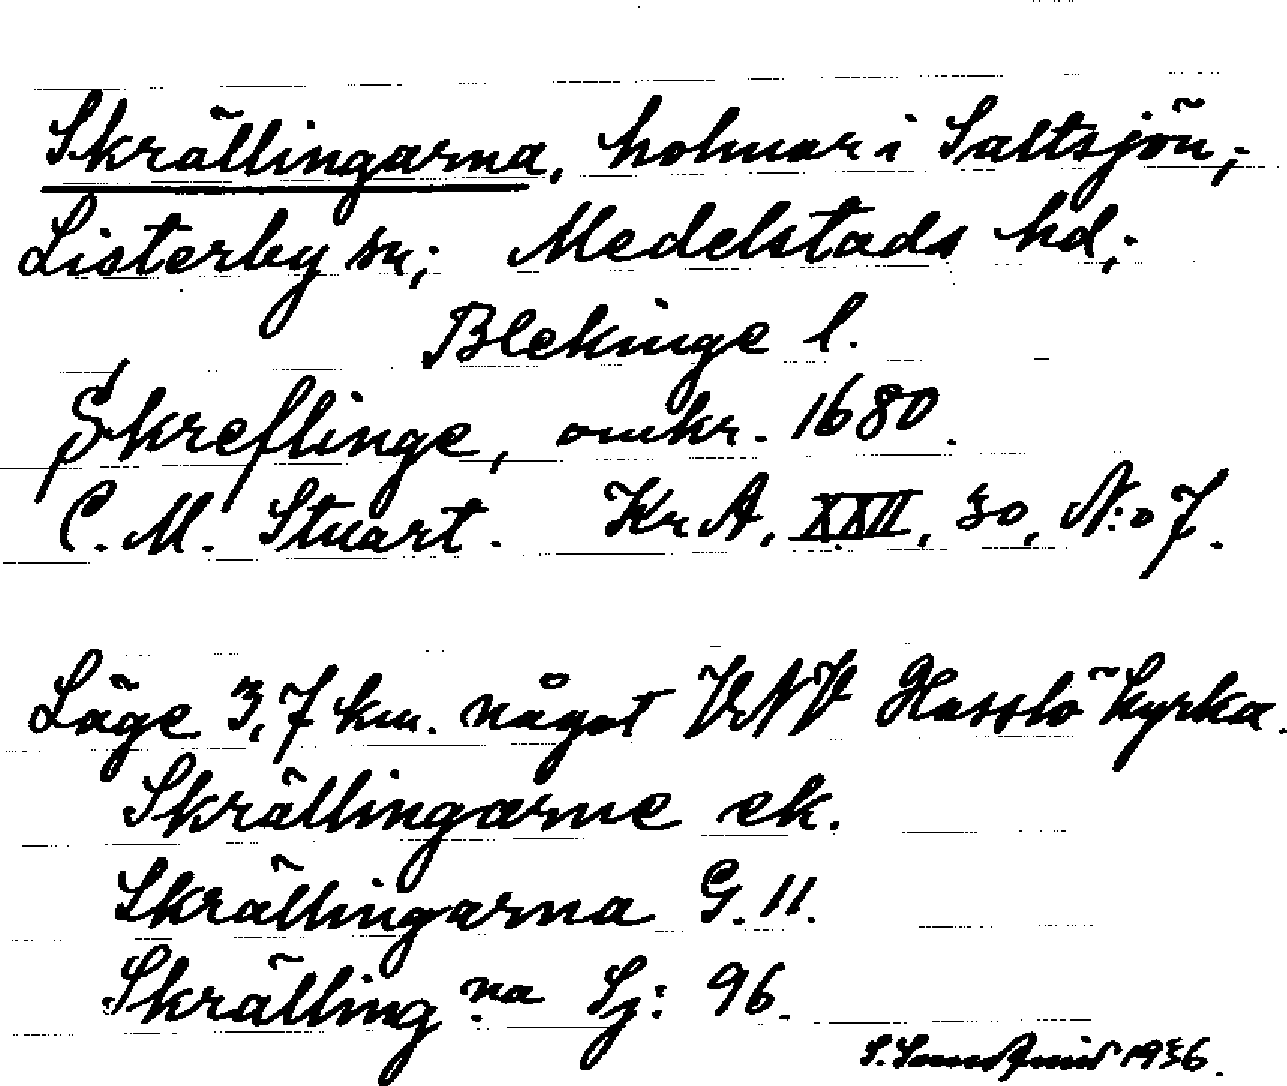 Skrällingarna, holmar i Saltsjön;
Listerby sn; Medelstads hd;
Blekinge l.
Skreflinge, omkr. 1680.
C. M. Stuart. Kr A. XXII, 30, N:o 7.
Läge 3,7 km. något VNV Hasslö kyrka.
Skrällingarne ek.
Skrällingarna G. 11.
Skrälling na Sj: 96.
S. 1936.